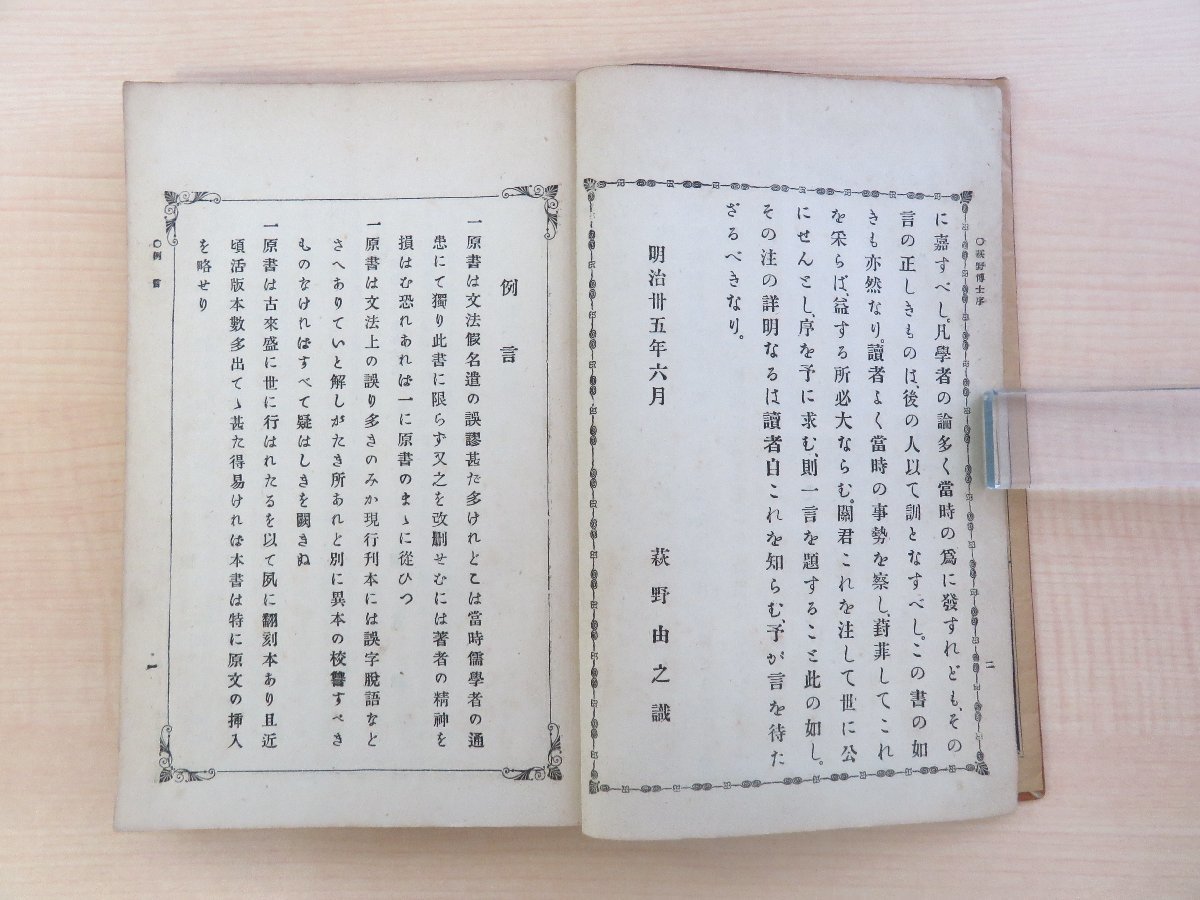 〇萩野博士序
二
に嘉すべし。凡學者の論多く當時の爲に發すれども、その
言の正しきものは、後の人以て訓となすべし。この書の如
きも亦然なり。讀者よく當時の事勢を察し、葑菲してこれ
を采らば、益する所必大ならむ。關君これを注して世に公
にせんとし、序を予に求む、則一言を題すること此の如し。
その注の詳明なるは讀者自これを知らむ、予が言を待た
ざるべきなり。
明治卅五年六月
萩野由之識
例言
一原書は文法假名遣の誤謬甚だ多けれとこは當時儒學者の通
患にて獨り此書に限らず又之を改刪せむには著者の精神を
損はむ恐れあれば一に原書のまゝに從ひつ
一原書は文法上の誤り多きのみか現行刊本には誤字脫語なと
さへありていと解しがたき所あれと別に異本の校讐すべき
ものなければすべて疑はしきを闕きぬ
一原書は古來盛に世に行はれたるを以て夙に翻刻本あり且近
頃活版本數多出てゝ甚た得易ければ本書は特に原文の挿入
を略せり
〇例言
一